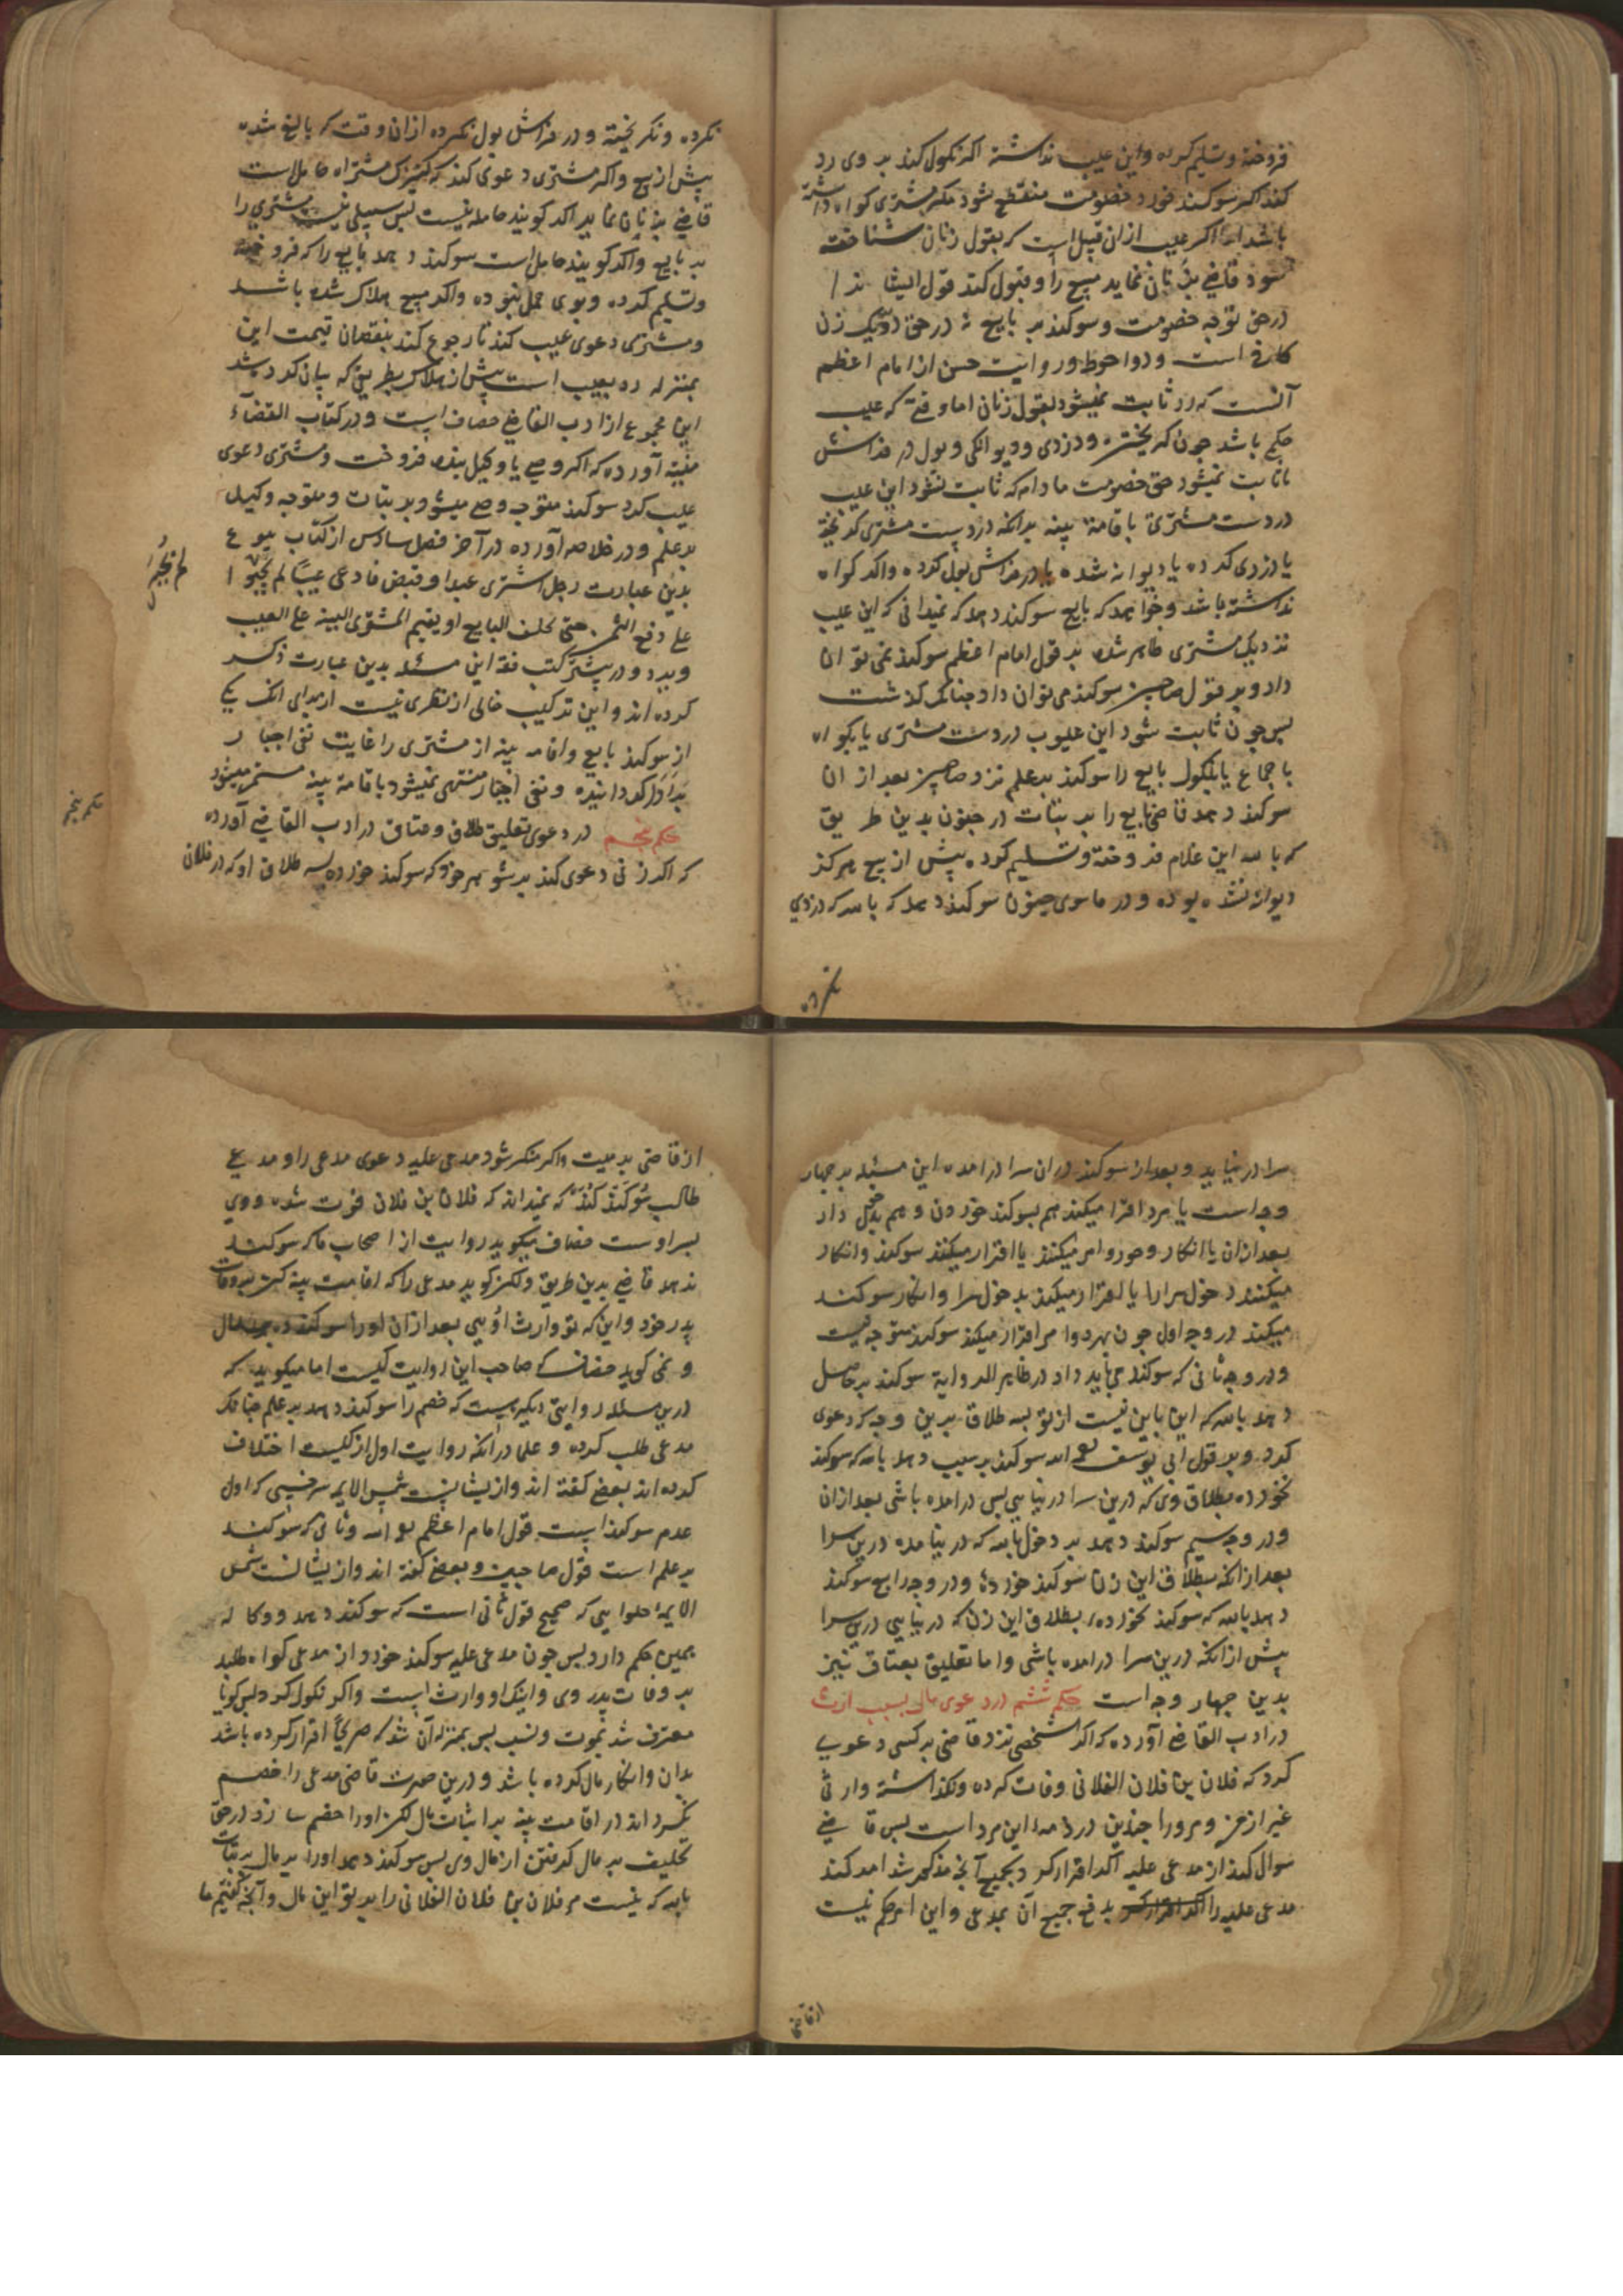 فروخته وتسلیم کرده واین عیب نداشته اکر نکول کند بر وی رد
کند اکر سوکند خورد خصومت منقطع شود مکر مشتری کواه داشته
باشد اما اکر عیب ازان قبیل است که بقول زنان شناخته
شود قاضی بزنان نماید مبیع را وقبول کند قول ایشانرا
در حق توجه خصومت وسوکند بر بایع نه در حق رد یک زن
کافی است ودو احوط ودر روایت حسن از امام اعظم
آنست که رد ثابت نمیشود بقول زنان اما وقتی که عیب
حکم باشد چون کریختن ودزدی ودیوانکی وبول در فراش
ثابت نمیشود حق خصومت مادام که ثابت نشود این عیب
در دست مشتری باقامة بینه برانکه در دست مشتری کریخته
یا دزدی کرده یا دیوانه شده یا در فراش بول کرده واکر کواه
نداشته باشد وخواهد که بایع سوکند دهد که نمیدانی که این عیب
نزدیک مشتری ظاهر شده بر قول امام اعظم سوکند نمی توان
داد وبر قول صاحبین سوکند می توان داد چنانکه کذشت
پس چون ثابت شود این عیوب در دست مشتری یا بکواه
با جماع یا بنکول بایع را سوکند بر علم نزد صاحبین بعد از ان
سوکند دهد قاضی بایع را بر بتات در جنون بدین طریق
که بالله این غلام فروخته وتسلیم کرده پیش از بیع هرکز
دیوانه نشده بوده ودر ماسوی جنون سوکند دهد که بالله که دزدی
نکرده
نکرده ونکریخته ودر فراش بول نکرده ازان وقت که بالغ شده
پیش از بیع واکر مشتری دعوی کند که کنیزک مشتراه حامل است
قاضی بزنان نماید اکر کویند حامله نیست پس سبیلی نیست مشتری را
بر بایع واکر کویند حامل است سوکند دهد بایع را که فروخته
وتسلیم کرده وبوی حمل نبوده واکر مبیع هلاک شده باشد
ومشتری دعوی عیب کند تا رجوع کند بنقصان قیمت این
بمنزله رد بعیب است پیش از هلاک بطریقی که بیان کرده شد
این مجموع از ادب القاضی خصاف است ودر کتاب القضاء
منیه آورده که اکر وصی یا وکیل بنده فروخت ومشتری دعوی
عیب کرد سوکند متوجه وصی میشود بر بتات ومتوجه وکیل
بر علم ودر خلاصه آورده در آخر فصل سادس از کتاب بیوع
لم یجبر
بدین عبارت رجل اشتری عبدا وقبض فادعی عیبا لم یجبر
علی دفع الثمن حتی یحلف البایع او یقیم المشتری البینه علی العیب
وبرد ودر بیشتر کتب فقه این مسئله بدین عبارت ذکر
کرده اند واین ترکیب خالی از نظری نیست از برای انکه یکی
از سوکند بایع واقامه بینه از مشتری را غایت نفی اجبار
بر ادا کردانیده ونفی اجبار منتهی نمیشود باقامة بینه مستمر میشود
حکم پنجم
حکم پنجم در دعوی تعلیق طلاق وعتاق در ادب القاضی آورده
که اکر زنی دعوی کند بر شوهر خود که سوکند خورده بسه طلاق او که در فلان
سرا در نیاید وبعد از سوکند دران سرا در امده این مسئله بر چهار
وجه است یا هر دو اقرار میکند هم بسوکند خوردن وهم بدخول دار
بعد ازان یا انکار هر دو امر میکند یا اقرار میکند سوکند وانکار
میکند دخول سرا را یا اقرار میکند بدخول سرا وانکار سوکند
میکند در وجه اول چون بهر دو امر اقرار میکند سوکند متوجه نیست
ودر وجه ثانی که سوکند می باید داد در ظاهر الروایة سوکند بر حاصل
دهد بالله که این باین نیست از تو بسه طلاق بدین وجه که دعوی
کرد وبر قول ابی یوسف سوکند بر سبب دهد بالله که سوکند
نخورده بطلاق وی که درین سرا در نیایی پس در امده باشی بعد ازان
ودر وجه سیم سوکند دهد بر دخول بالله که در نیامده درین سرا
بعد ازانکه بطلاق این زن سوکند خورده ودر وجه رابع سوکند
دهد بالله که سوکند نخورده بطلاق این زن که در نیایی درین سرا
پیش ازانکه درین سرا در امده باشی واما تعلیق بعتاق نیز
بدین چهار وجه است حکم ششم در دعوی مال بسبب ارث
در ادب القاضی آورده که اکر شخصی نزد قاضی بر کسی دعوی
کرد که فلان بن فلان الفلانی وفات کرده ونکذاشته وارثی
غیر از من ومر او را چندین در ذمه این مرد است پس قاضی
سوال کند از مدعی علیه اکر اقرار کرد بجمیع آنچه مذکور شد امر کند
مدعی علیه را بدفع جمیع آن بمدعی واین امر حکم نیست
از قاضی
از قاضی بر میت واکر منکر شود مدعی علیه دعوی مدعی را ومدعی
طالب سوکند کند که نمیداند که فلان بن فلان فوت شده ووی
پسر اوست خصاف میکوید روایت از اصحاب ما که سوکند
ندهد قاضی بدین طریق ولکن کوید مدعی را که اقامت بینه کن بر وفات
پدر خود واین که تو وارث اویی بعد ازان او را سوکند ده بر مال
ونمی کوید خصاف که صاحب این روایت کیست اما میکوید که
درین مسئله روایتی دیکر هست که خصم را سوکند دهد بر علم چنانکه
مدعی طلب کرده وعلما درانکه روایت اول از کیست اختلاف
کرده اند بعضی کفته اند وازیشانست شمس الایمه سرخسی که اول
عدم سوکند است قول امام اعظم وثانی که سوکند
بر علم است قول صاحبین وبعضی کفته اند وازیشانست شمس
الایمه حلوایی که صحیح قول ثانی است که سوکند دهد ووکاله
همین حکم دارد پس چون مدعی علیه سوکند خورد از مدعی کواه طلبد
بر وفات پدر وی واینکه او وارث است واکر نکول کرد پس کویا
معترف شد بموت ونسب پس بمنزله آن شد که صریحا اقرار کرده باشد
بدان وانکار مال کرده باشد ودرین صورت قاضی مدعی را خصم
نکرداند در اقامت بینه بر اثبات مال لکن او را خصم سازد در حق
تحلیف بر مال کرفتن از مال وی پس سوکند دهد او را بر مال بر بتات
بالله که نیست مر فلان بن فلان الفلانی را بر تو این مال وآنچه کفتیم ما